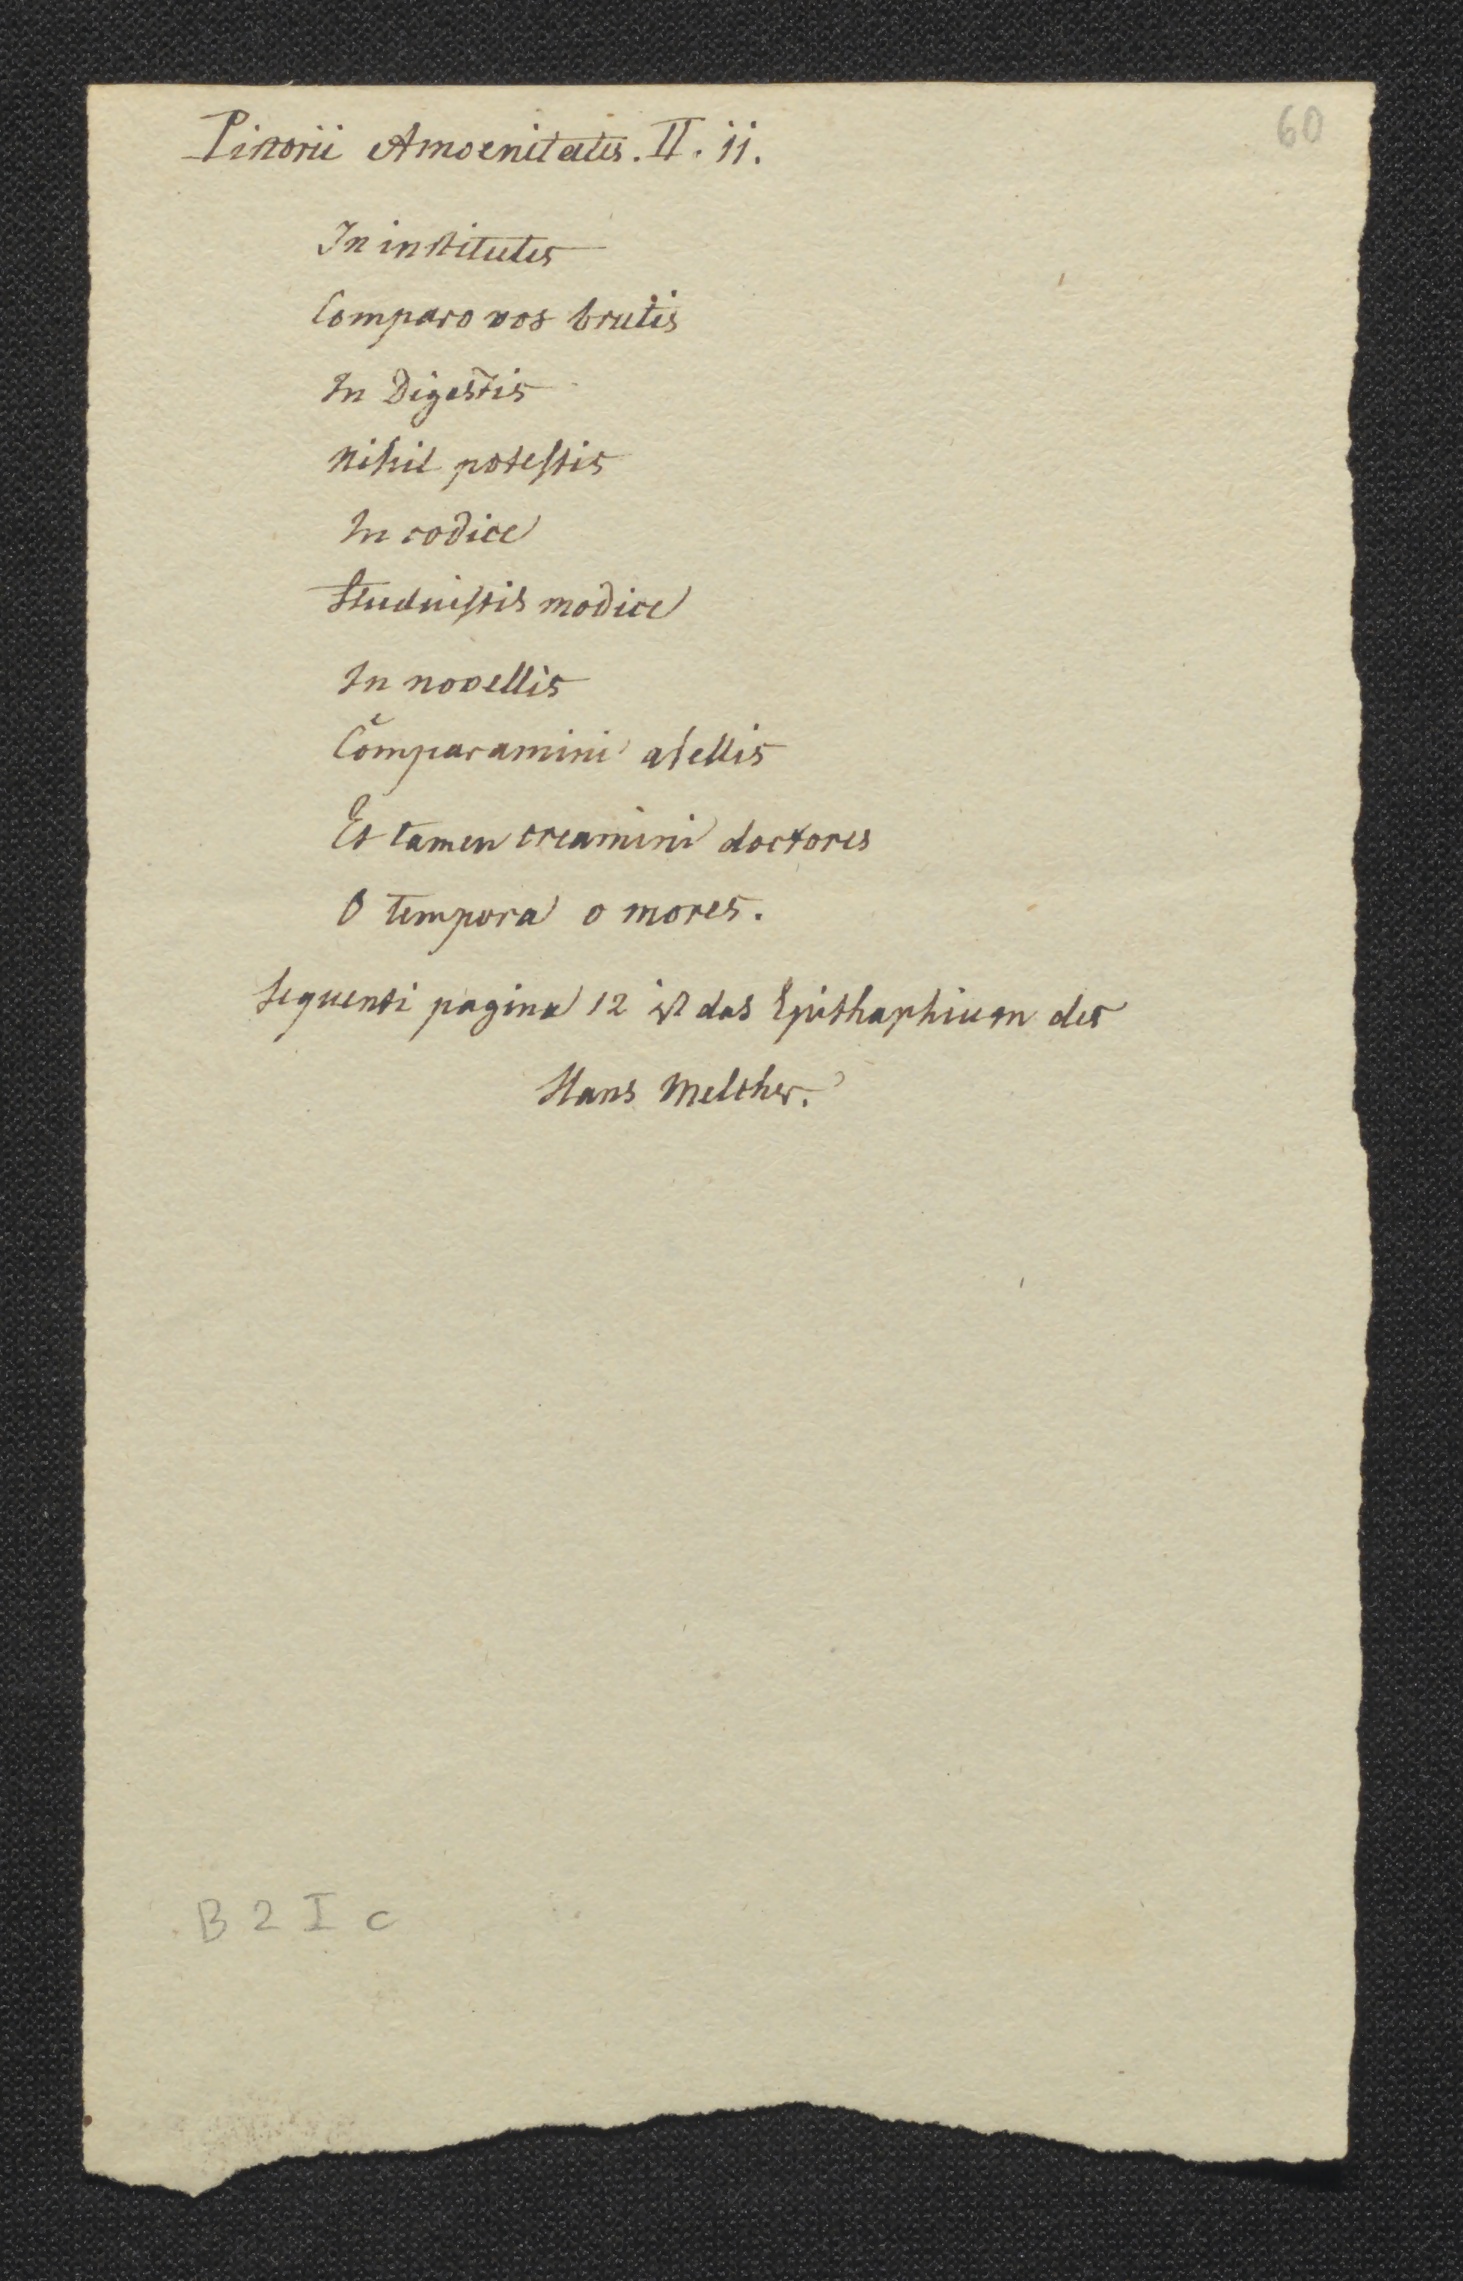 Pistorii Amoenitatis. II. ii.
60
In institutis
Comparo vos brutis
In Digestis
nihil potestis
In codice
studuistis modice
In novellis
Comparamini asellis
Et tamen creamini doctores
O tempora o mores.
Sequenti pagina 12 ist das Epithaphium des
Hans Melcher.
B 2 I c